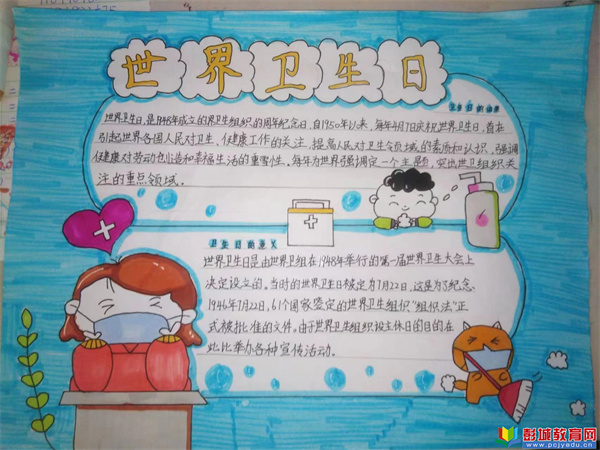 世界卫生日
卫生日的由来
世界卫生日,是1948年成立的界卫生组织的周年纪念日,自1950年以来,每年4月7日庆祝世界卫生日,旨在
引起世界各国人民对卫生、健康工作的关注,提高人民对卫生领域的素质和认识,强调
健康对劳动创造和幸福生活的重要性。每年为世界强调定一个主题,突出世卫组织关
注的重点领域。
卫生日的意义
世界卫生日是由世界卫组在1948年举行的第一届世界卫生大会上
决定设立的。当时的世界卫生日被定为7月22日,这是为了纪念
1946年7月22日,61个国家签定的世界卫生组织"组织法"正
式被批准的文件。由于世界卫生组织设主休日的目的在
此比举办各种宣传活动。
彭城教育网
www.pcjyedu.cn